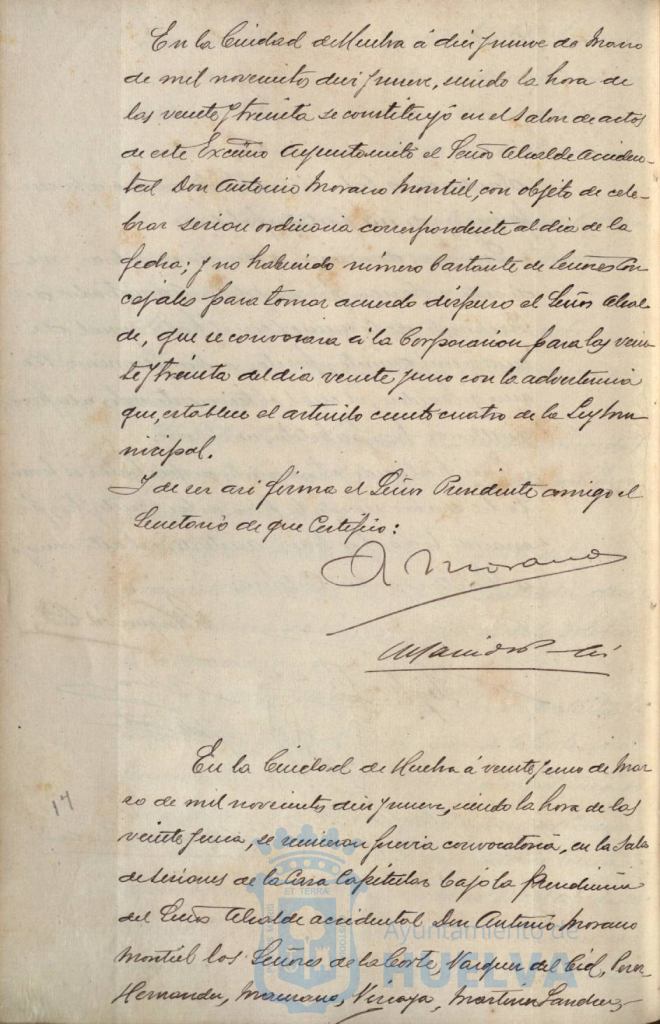 En la Ciudad de Huelva á diez y nueve de Marzo
de mil novecientos diez y nueve, siendo la hora de
las veinte y treinta se constituyó en el Salon de actos
de este Excmo Ayuntamiento el Señor Alcalde Acciden-
tal Don Antonio Morano Montiel, con objeto de cele-
brar sesion ordinaria correspondiente al dia de la
fecha; y no habiendo número bastante de Señores Con
cejales para tomar acuerdo dispuso el Señor Alcal
de, que se convocara á la Corporacion para las vein
te y treinta del dia veinte y uno con la advertencia
que, establece el articulo ciento cuatro de la Ley Mu
nicipal.
Y de ser asi firma el Señor Presidente conmigo el
Secretario de que Certifico:
A Morano
17
En la Ciudad de Huelva á veinte y uno de Mar
zo de mil novecientos diez y nueve, siendo la hora de las
veinte y una, se reunieron previa convocatoria, en la Sala
de Sesiones de la Casa Capitular bajo la Presidencia
del Señor Alcalde accidental Don Antonio Morano
Montiel los Señores de la Corte, Vazquez del Cid, Perez
Hernandez, Manzano, Vizcaya, Martinez Sanchez
Ayuntamiento de
HUELVA